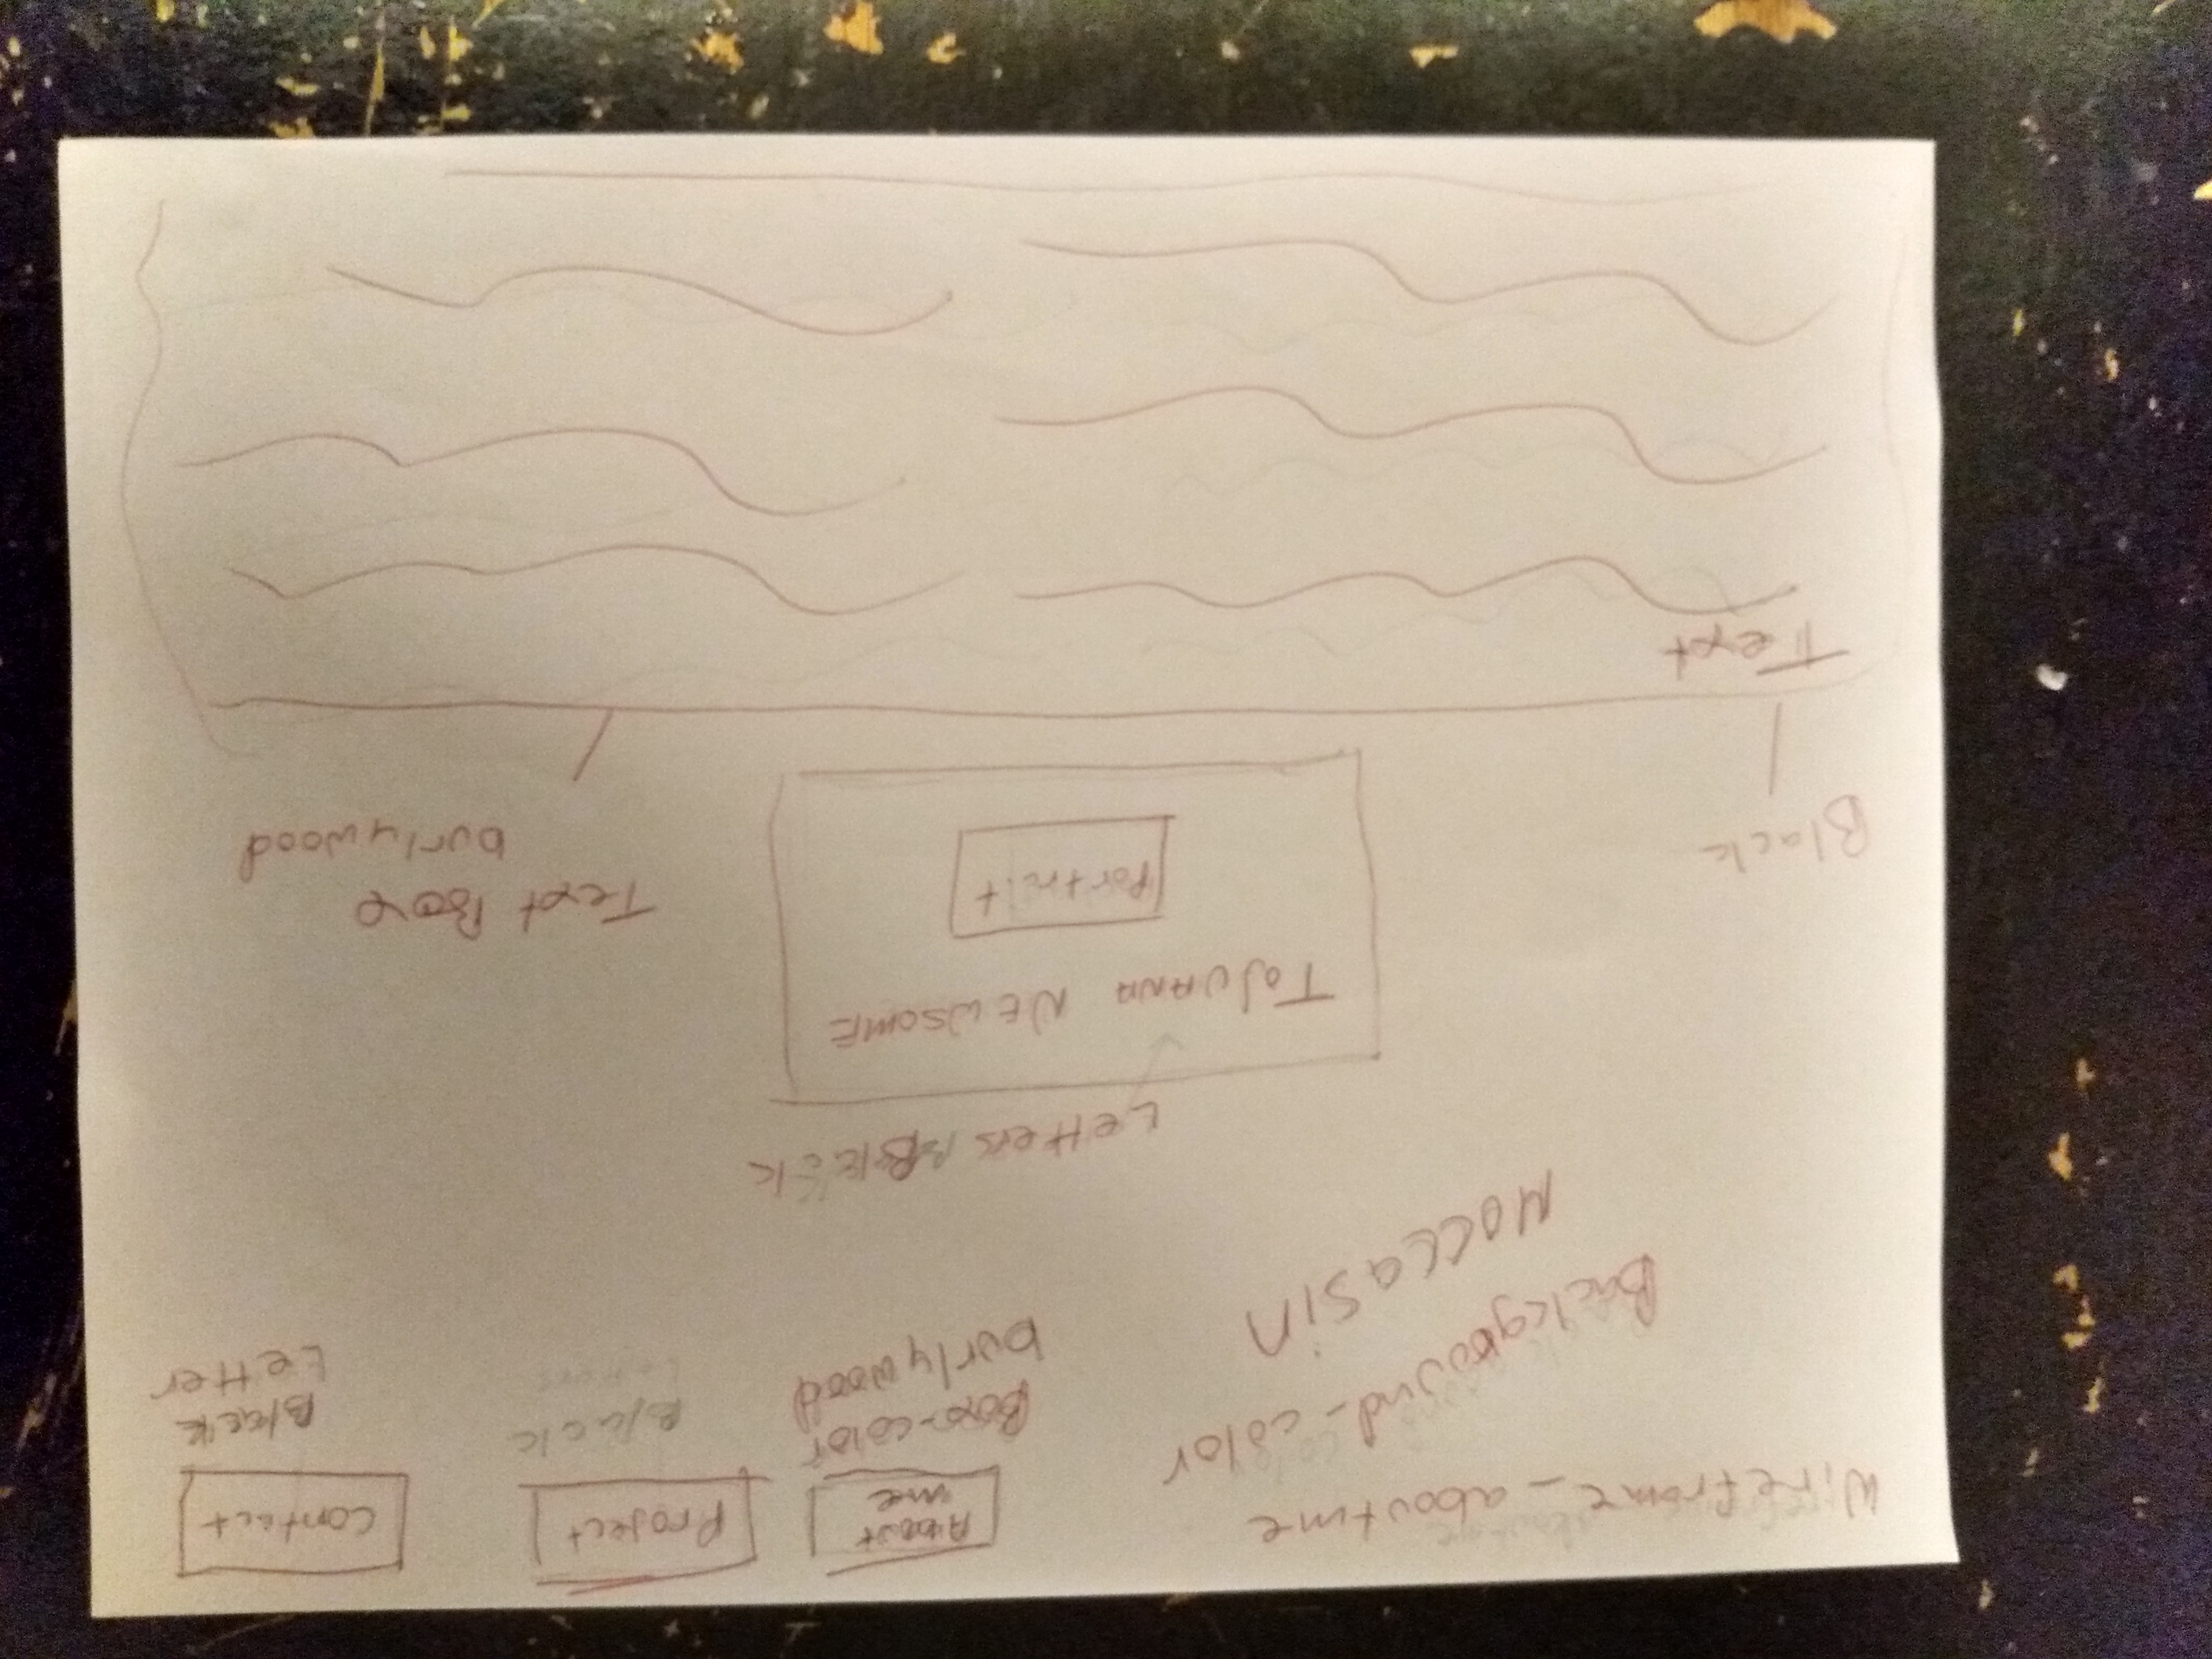 Wireframe_aboutme
About
me
Project
Contact
Background_color
Moccasin
Box-color
burlywood
Black
Letters
Black
Letter
Letters Black
ToJUANA NEWSOME
Portrait
Black
Text Box
burlywood
Text